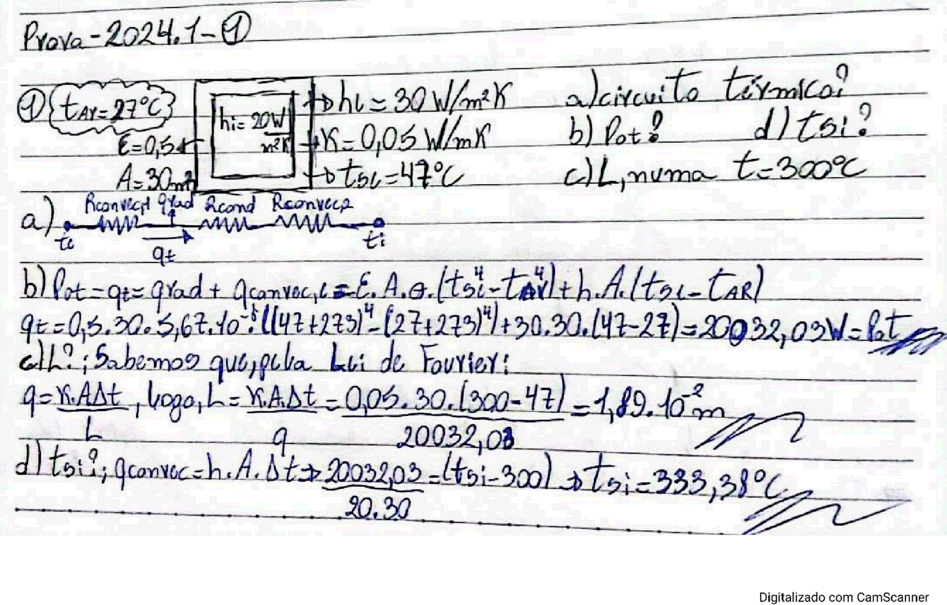 Prova-2024.1-①
① tAr=27°C
hi=20W/m²K
→he=30W/m²K
a)circuito térmico?
E=0,5
→K=0,05W/mK
b)Pot? d)tsi?
A=30m²
→tse=47°C
c)L, numa t=300°C
Rconvec,1 qrad Rcond Rconvec,2
a)
te qt ti
b)Pot=qt=qrad+qconvec,e=E.A.σ.(tse⁴-tAr⁴)+h.A.(tse-tAR)
qt=0,5.30.5,67.10⁻⁸.((47+273)⁴-(27+273)⁴)+30.30.(47-27)=20032,03W=Pot
c)L?; Sabemos que, pela Lei de Fourier:
q=K.AΔt/L, logo, L=K.AΔt/q=0,05.30.(300-47)/20032,03=1,89.10⁻²m
d)tsi?; qconvec=h.A.Δt→20032,03/20.30=(tsi-300)→tsi=333,38°C
Digitalizado com CamScanner